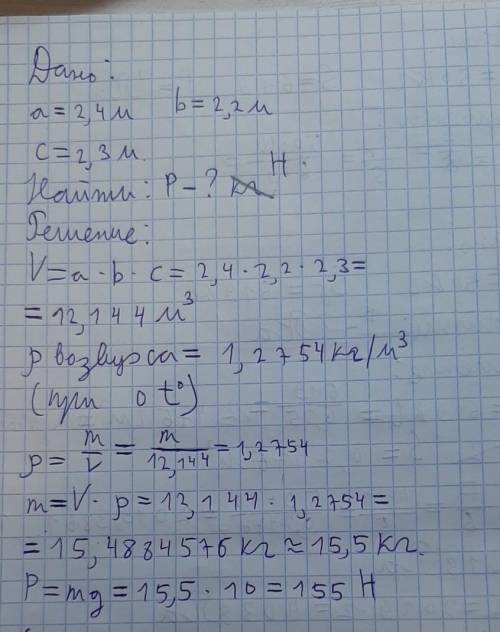 Дано:
a = 2,4 м b = 2,2 м
c = 2,3 м.
Найти: P - ? Н.
Решение:
V = a · b · c = 2,4 · 2,2 · 2,3 =
= 12,144 м³
ρ воздуха = 1,2754 кг/м³
(при 0 t°)
ρ = m/V = m/12,144 = 1,2754
m = V · ρ = 12,144 · 1,2754 =
= 15,4884576 кг ≈ 15,5 кг.
P = mg = 15,5 · 10 = 155 Н